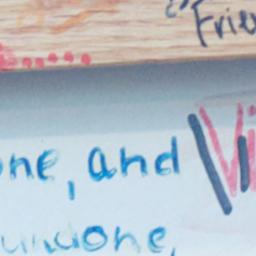 Frie
ne, and Vi
undone,